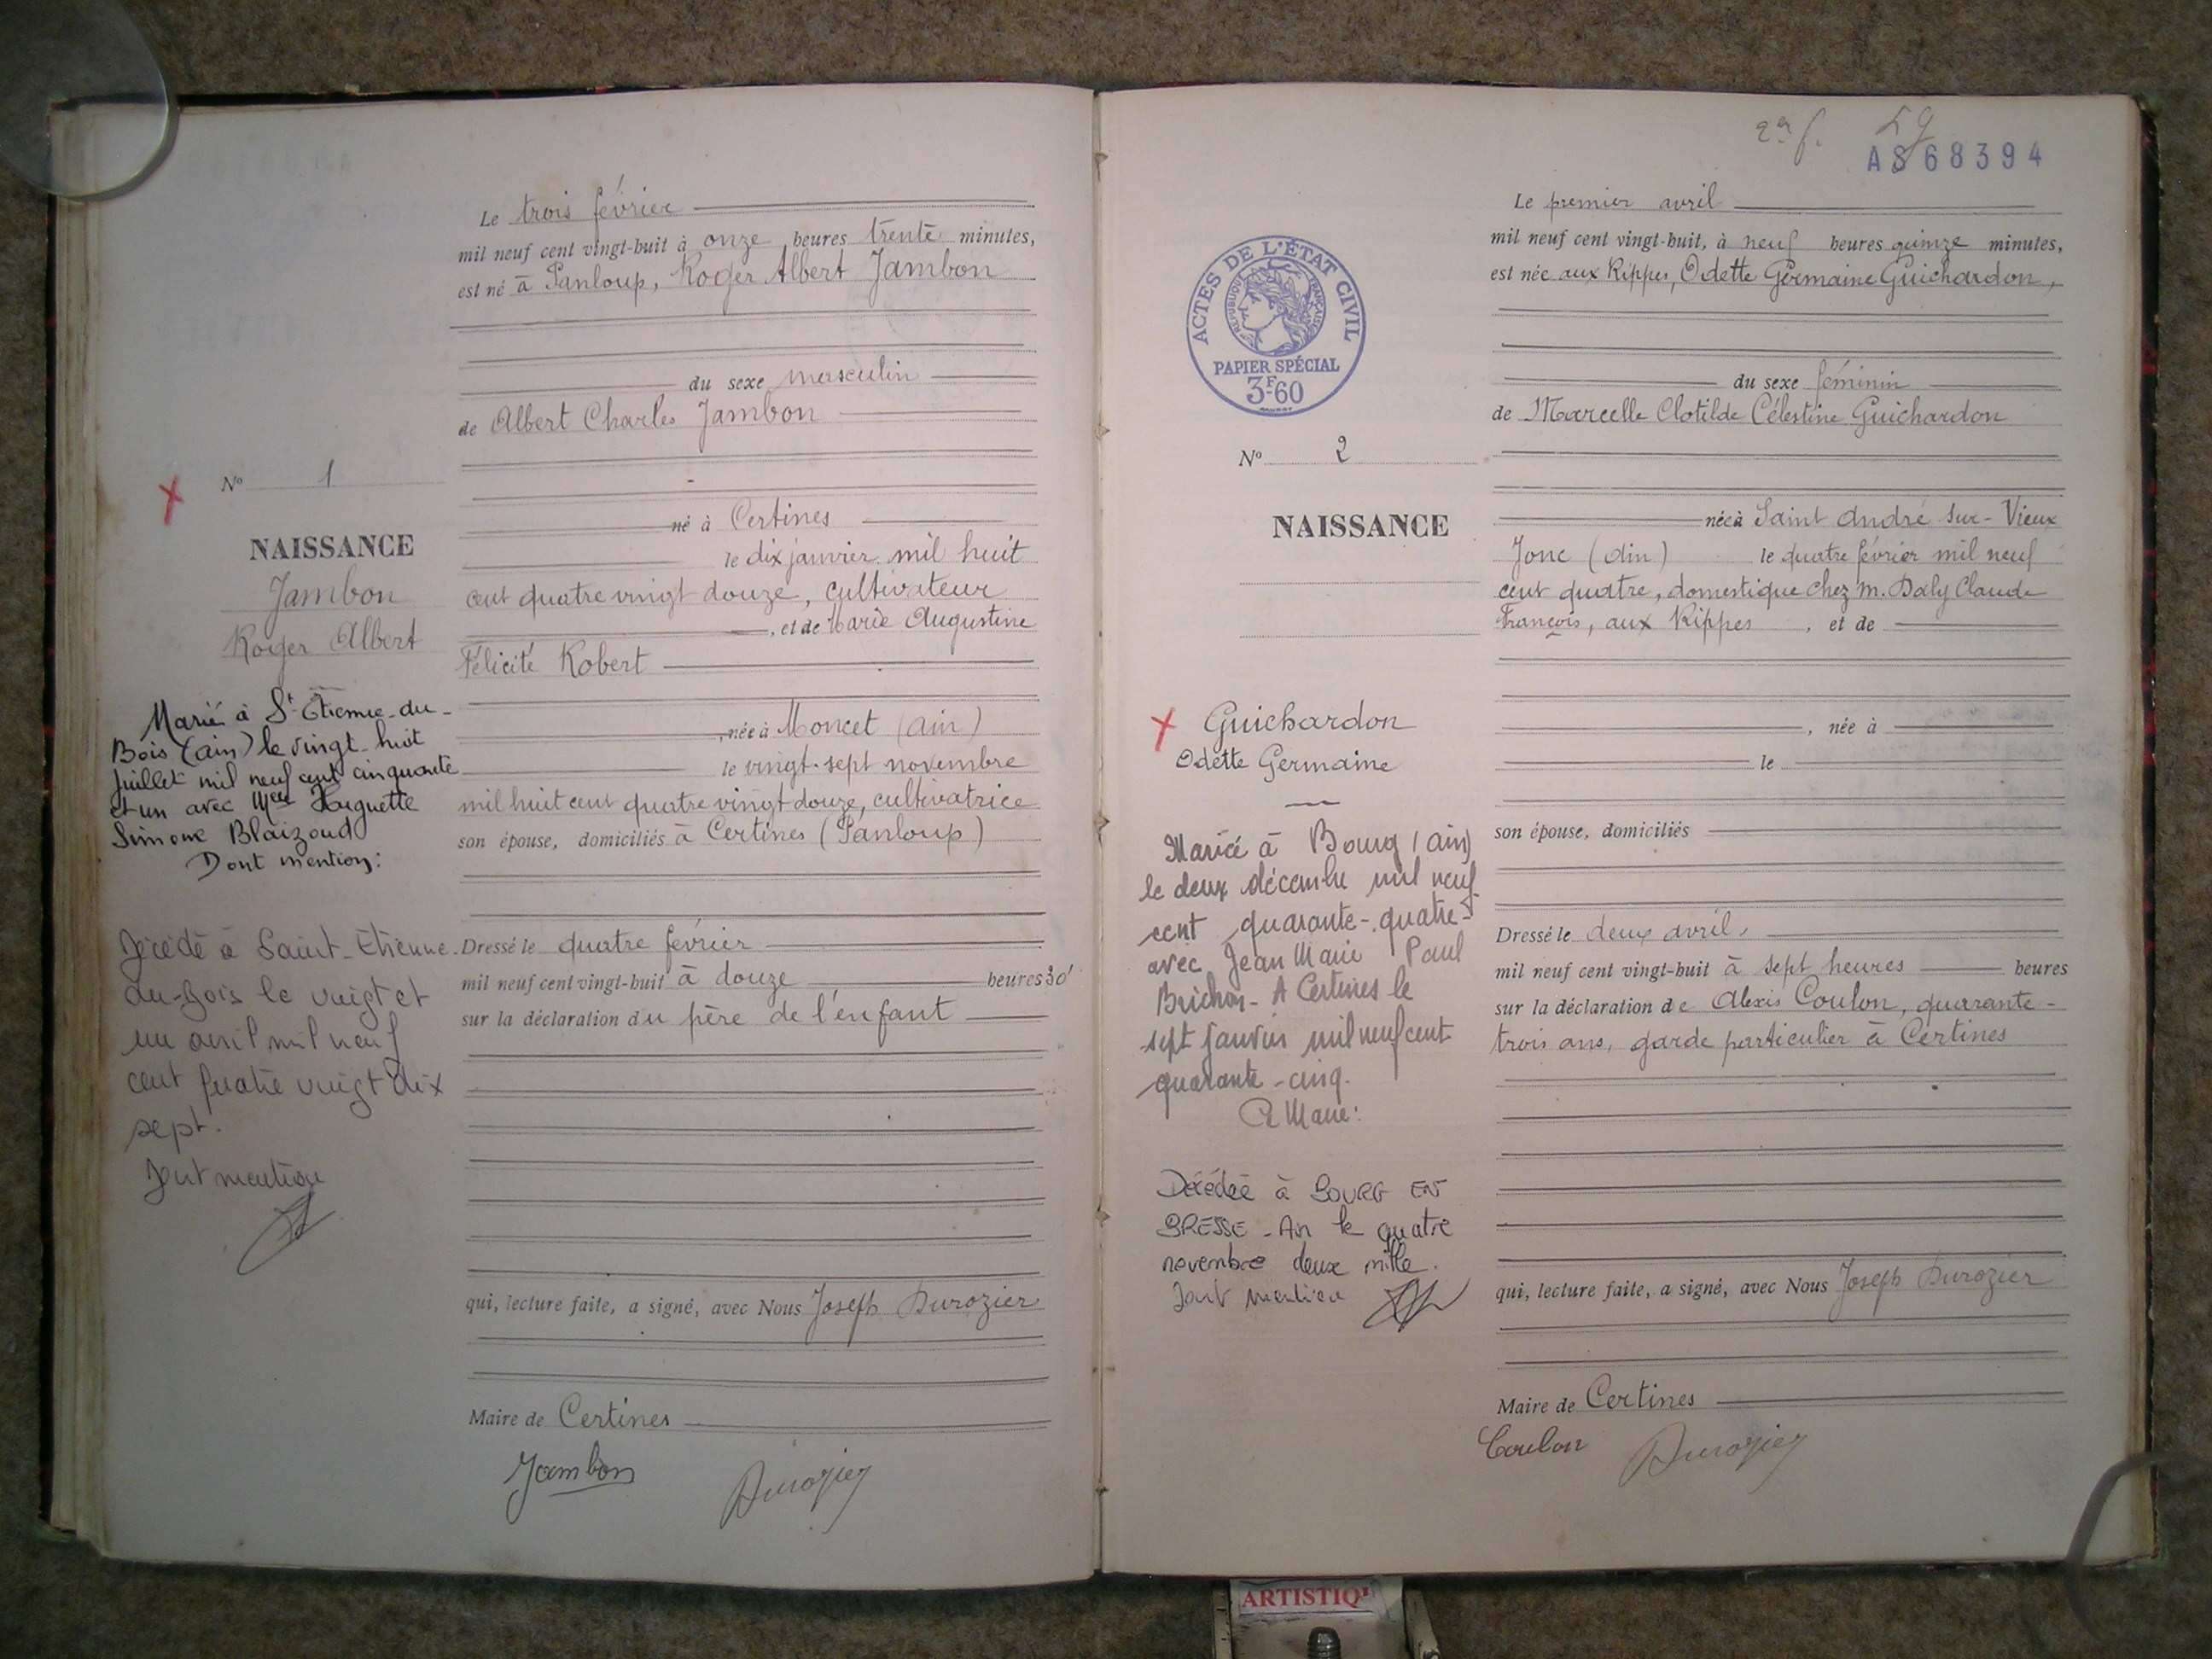 Le trois février
mil neuf cent vingt-huit à onze heures trente minutes,
est né à Panloup, Roger Albert Jambon
du sexe masculin
de Albert Charles Jambon
né à Certines
le dix janvier mil huit
cent quatre vingt douze, cultivateur
, et de Marie Augustine
Félicité Robert
, née à Moncet (Ain)
le vingt-sept novembre
mil huit cent quatre vingt douze, cultivatrice
son épouse, domiciliés à Certines (Panloup)
Dressé le quatre février
mil neuf cent vingt-huit à douze heures 30'
sur la déclaration du père de l'enfant
qui, lecture faite, a signé, avec Nous Joseph Durozier
Maire de Certines
Jambon Durozier
N° 1
NAISSANCE
Jambon
Roger Albert
Marié à St Etienne-du-
Bois (Ain) le vingt huit
juillet mil neuf cent cinquante
et un avec Melle Huguette
Simone Blaizoud
Dont mention:
Décédé à Saint-Etienne-
du-Bois le vingt et
un avril mil neuf
cent quatre vingt dix
sept.
Dont mention
2e f. 29
AS68394
ACTES DE L'ÉTAT CIVIL
RÉPUBLIQUE FRANÇAISE
PAPIER SPÉCIAL
3F60
N° 2
NAISSANCE
Guichardon
Odette Germaine
Mariée à Bourg (Ain)
le deux décembre mil neuf
cent quarante-quatre
avec Jean Marie Paul
Brichon - A Certines le
sept janvier mil neuf cent
quarante-cinq.
Le Maire:
Décédée à BOURG EN
BRESSE - Ain le quatre
novembre deux mille.
Dont mention
Le premier avril
mil neuf cent vingt-huit, à neuf heures quinze minutes,
est née aux Rippes, Odette Germaine Guichardon,
du sexe féminin
de Marcelle Clotilde Célestine Guichardon
née à Saint André sur-Vieux
Jonc (Ain) le quatre février mil neuf
cent quatre, domestique chez M. Daly Claude
François, aux Rippes, et de
, née à
le
son épouse, domiciliés
Dressé le deux avril,
mil neuf cent vingt-huit à sept heures heures
sur la déclaration de Alexis Coulon, quarante-
trois ans, garde particulier à Certines
qui, lecture faite, a signé, avec Nous Joseph Durozier
Maire de Certines
Coulon Durozier
ARTISTIQ